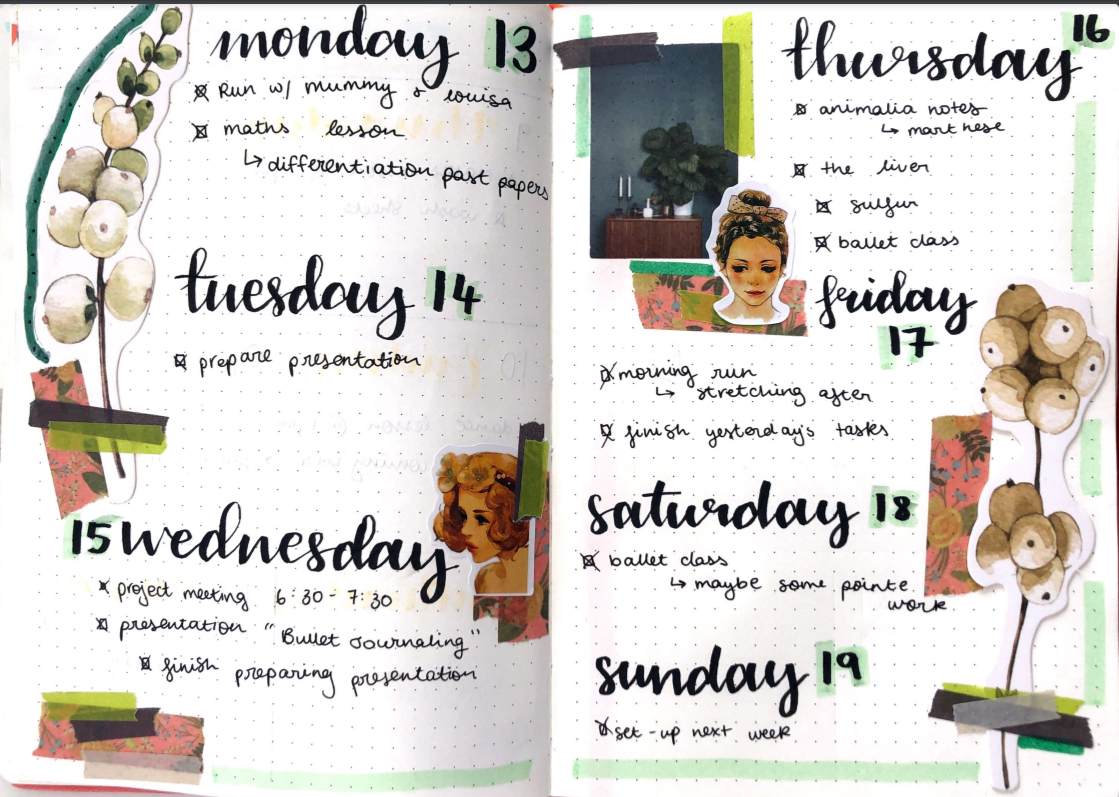 monday 13
Run w/ mummy & louisa
maths lesson
↳ differentiation past papers
tuesday 14
prepare presentation
15 wednesday
project meeting 6:30 - 7:30
presentation "Bullet Journaling"
finish preparing presentation
thursday 16
animalia notes
the liver
sulfur
ballet class
friday
17
morning run
↳ stretching after
finish yesterday's tasks
saturday 18
ballet class
↳ maybe some pointe
work
sunday 19
set-up next week